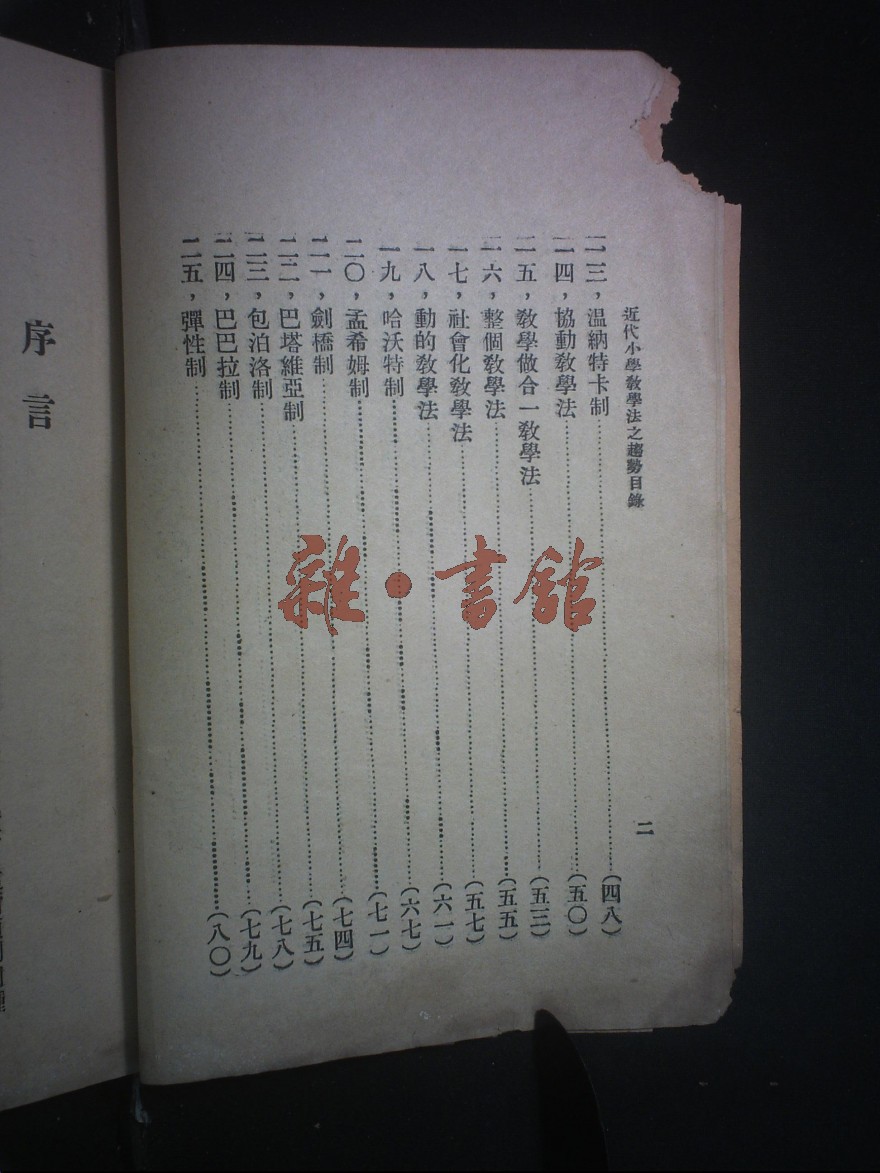 近代小學教學法之趨勢目錄
二
一三，温納特卡制……(四八)
一四，協動教學法……(五〇)
一五，教學做合一教學法……(五三)
一六，整個教學法……(五五)
一七，社會化教學法……(五七)
一八，動的教學法……(六一)
一九，哈沃特制……(六七)
二〇，孟希姆制……(七一)
二一，劍橋制……(七四)
二二，巴塔維亞制……(七五)
二三，包泊洛制……(七八)
二四，巴巴拉制……(七九)
二五，彈性制……(八〇)
序言
雜·書館